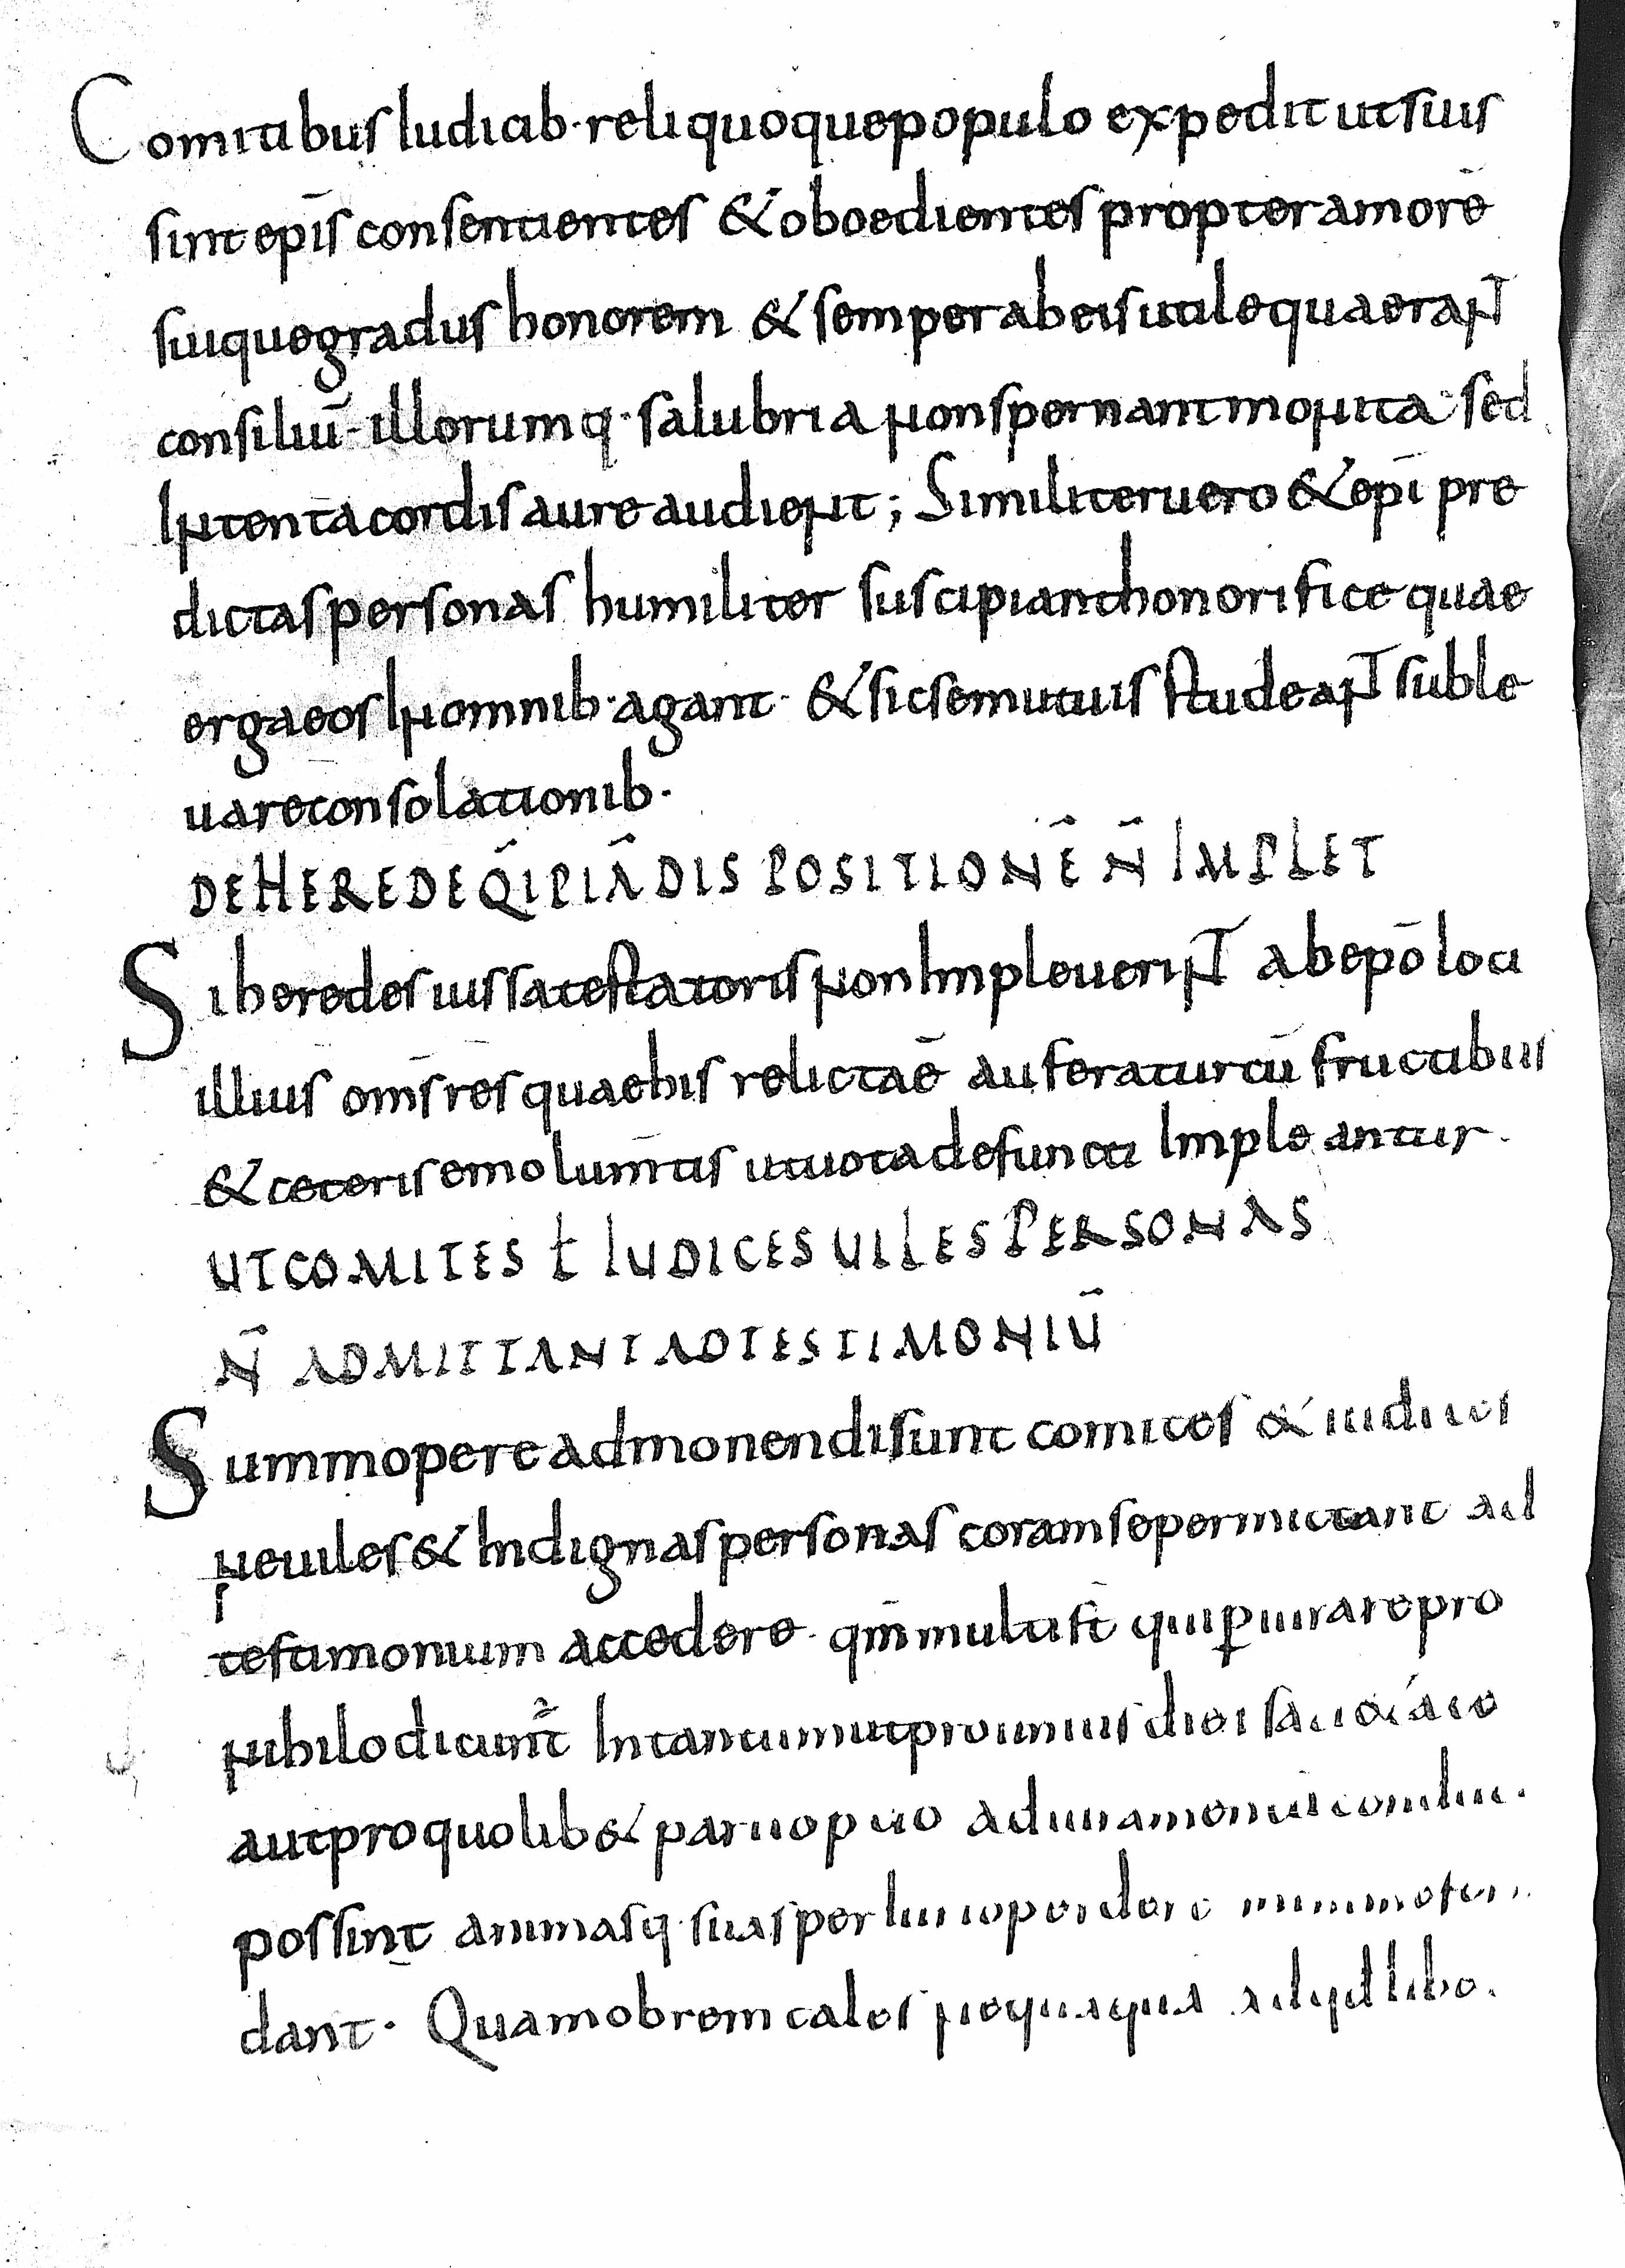 Comitibus Iudicib· reliquoque populo expedit ut suis
sint ep̄is consentientes & oboedientes propter amorē
suique gradus honorem & semper ab eis utile quaerant
consiliū· illorumq· salubria non spernant monita· sed
Intenta cordis aure audient; Similiter uero & ep̄i pre
dictas personas humiliter suscipiant honorifice quae
erga eos In omnib· agant· & sic se mutuis studeant suble
uare consolationib·
DE HEREDE Q̄I PIĀ DISPOSITIONĒ N̄ IMPLET
Si heredes iussa testatoris non Impleuerint ab ep̄o loci
illius om̄s res quae his relictae ̄ auferatur cū fructibus
& ceteris emolum̄tis ut uota defuncti Impleantur·
UT COMITES ł IUDICES UILES PERSONAS
N̄ ADMITTANT AD TESTIMONIŪ
Summopere admonendi sunt comites & iudices
ne uiles & Indignas personas coram se permittant ad
testimonium accedere· qm̄ multi st̄ qui ꝑiurare pro
nihilo dicunt̄ In tantum ut pro unius diei
aut pro quolib& paruo p
possint animasq· suas per perdere
dant· Quamobrem tales